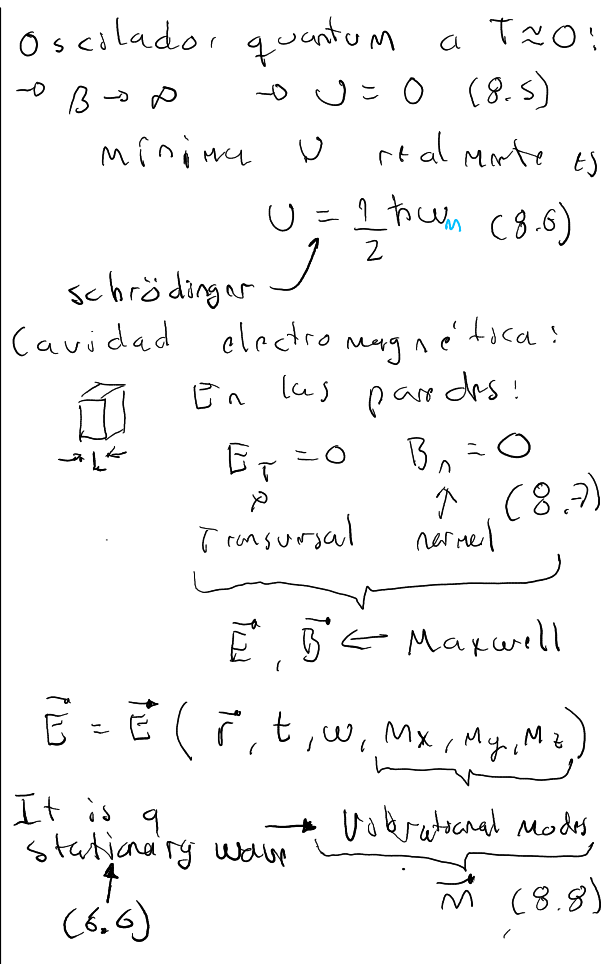 Oscilador quantum a T≈0:
→ β → ∞ → U = 0 (8.5)
mínima U realmente es
U = 1/2 ħω_m (8.6)
schrödinger
Cavidad electromagnética:
En las paredes:
→L←
E_T = 0 B_n = 0 (8.7)
Transversal normal
E⃗, B⃗ ← Maxwell
E⃗ = E⃗ (r⃗, t, ω, m_x, m_y, m_z)
It is a → Vibrational Modes
stationary wave
m⃗ (8.8)
(6.6)